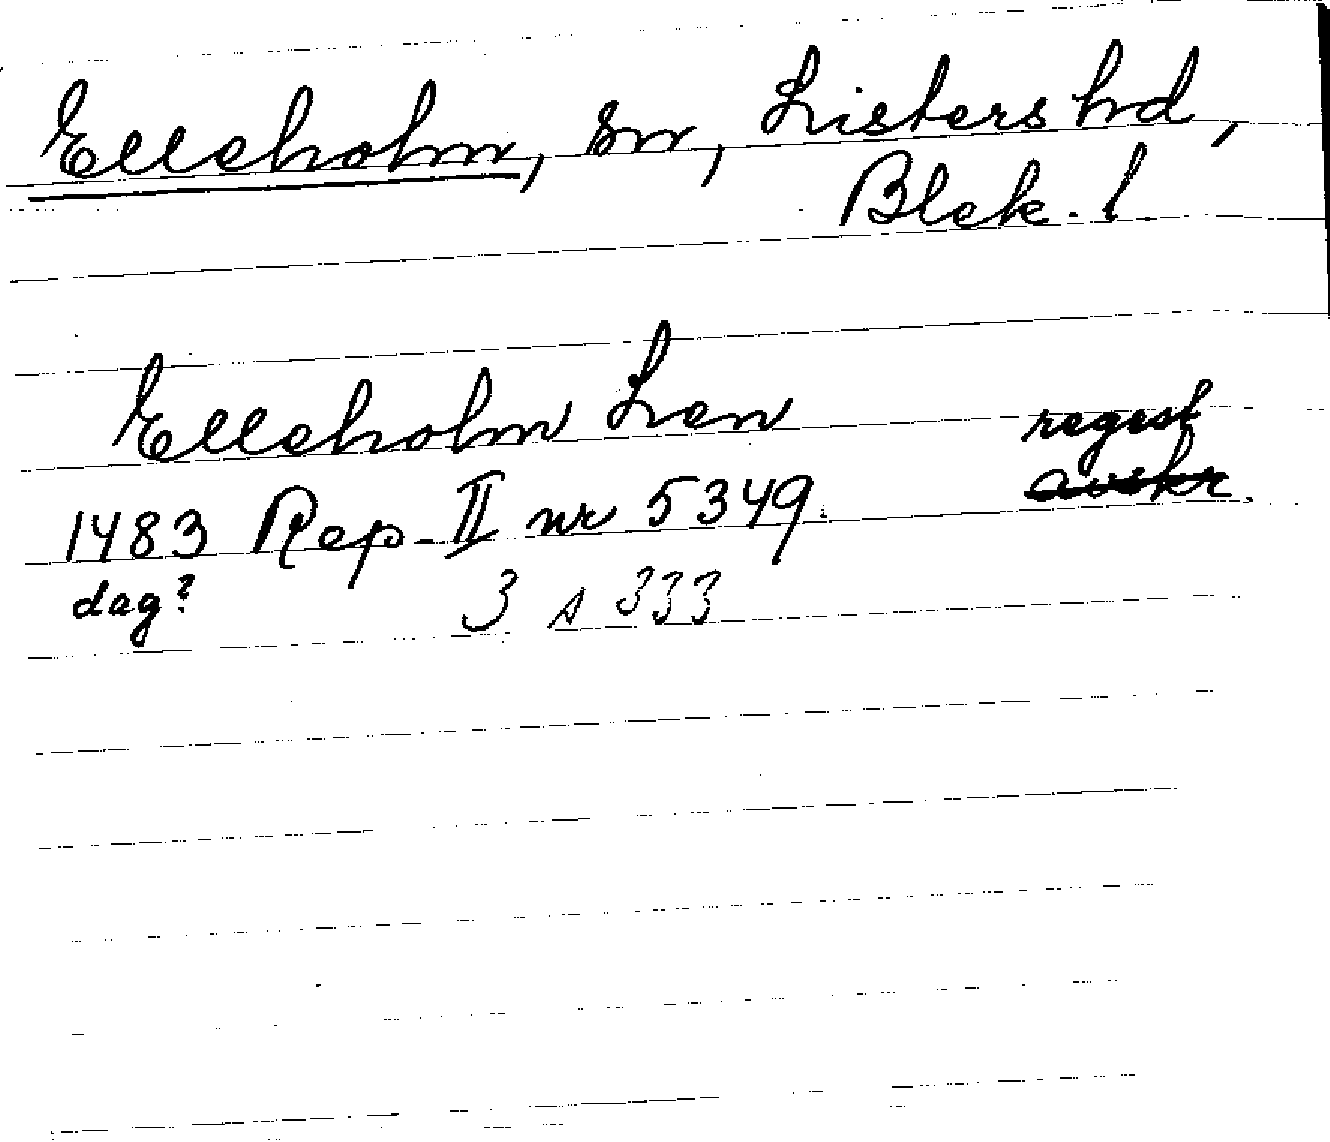 Elleholm, sn, Listers hd,
Blek. l.
Elleholm Len
regest
1483 Rep. II nr 5349. avskr.
dag? 3 s 333